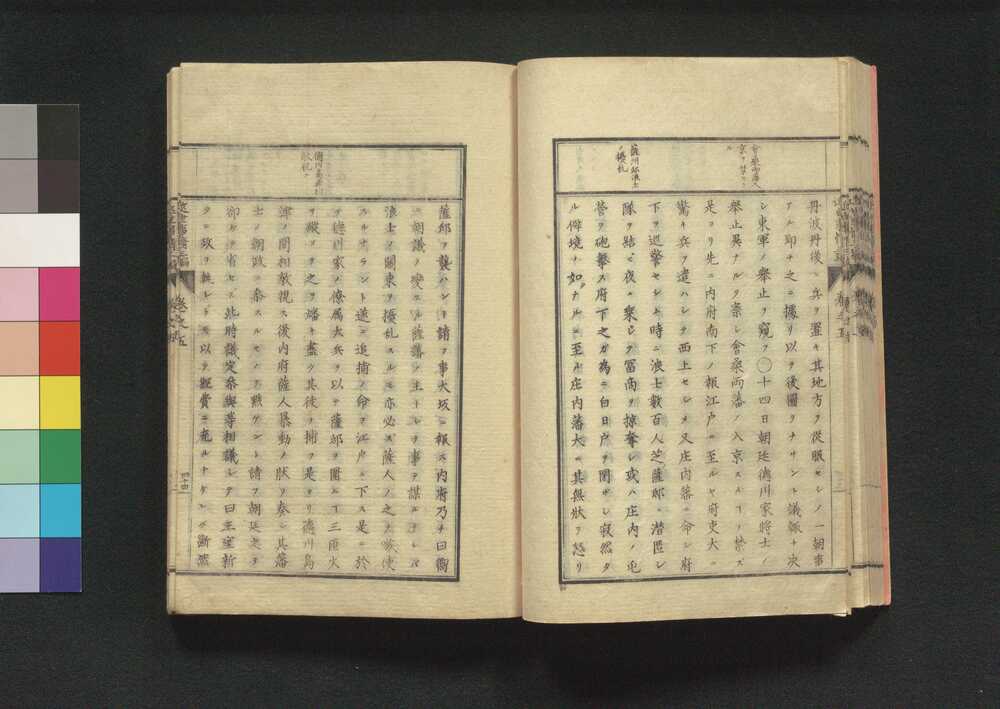 丹波丹後ニ兵ヲ置キ其地方ヲ從服セシノ一朝事
アル即チ之ニ據リ以ヲ後圖ヲナサント議輙チ决
シ東軍ノ舉止ヲ窺フ〇十四日朝廷德川家將士ノ
舉止異ナルヲ察シ會桑両藩ノ入京スルヿヲ禁ズ
是ヨリ先ニ内府南下ノ報江戸ニ至ルヤ府吏大ニ
驚キ兵ヲ遣ハシテ西上セシメ又庄内藩ニ命シ府
下ヲ巡警セシム時ニ浪士数百人芝薩邸ニ潜匿シ
隊ヲ結ヒ夜ニ乘シテ冨商ヲ掠奪シ或ハ庄内ノ屯
營ヲ砲撃ス府下之ガ為ニ白日户ヲ閉ザシ寂然タ
ル僻境ノ如クナルニ至ル庄内藩大ニ其無狀ヲ怒リ
會桑両藩入
京ヲ禁ズ
ル
薩州邸浪士
ノ擾乱
薩邸ヲ襲ハント請フ事大坂ニ報ス内府乃チ曰衞
朝議ノ變スル薩藩ノ主トシテ事ヲ謀ルニヨレバ
浪士ノ關東ヲ擾乱スルモ亦必ス薩人ノ之ヲ嗾使
スルナラント遂ニ追捕ノ命ヲ江户ニ下ス是ニ於
テ德川家ノ僚属大兵ヲ以テ薩邸ヲ圍ム丁三匝火
ヲ縱ツテ之ヲ燔キ盡ク其徒ヲ捕フ是ヨリ德川島
津ノ間相敵視ス後内府薩人暴動ノ狀ヲ奏シ其藩
士ノ朝政ニ參スルモノヲ黜ケント請フ朝廷
卻ケテ省セス此時議定參與等相議シテ曰王室新
タニ政ヲ執レトモ以テ經費ニ充ルナケン断然
四十四
卷之五